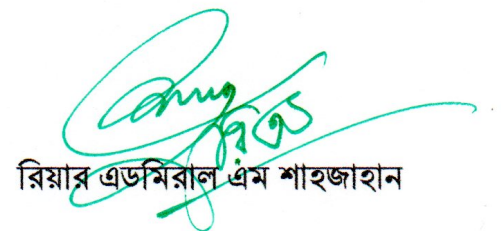 রিয়ার এডমিরাল এম শাহজাহান